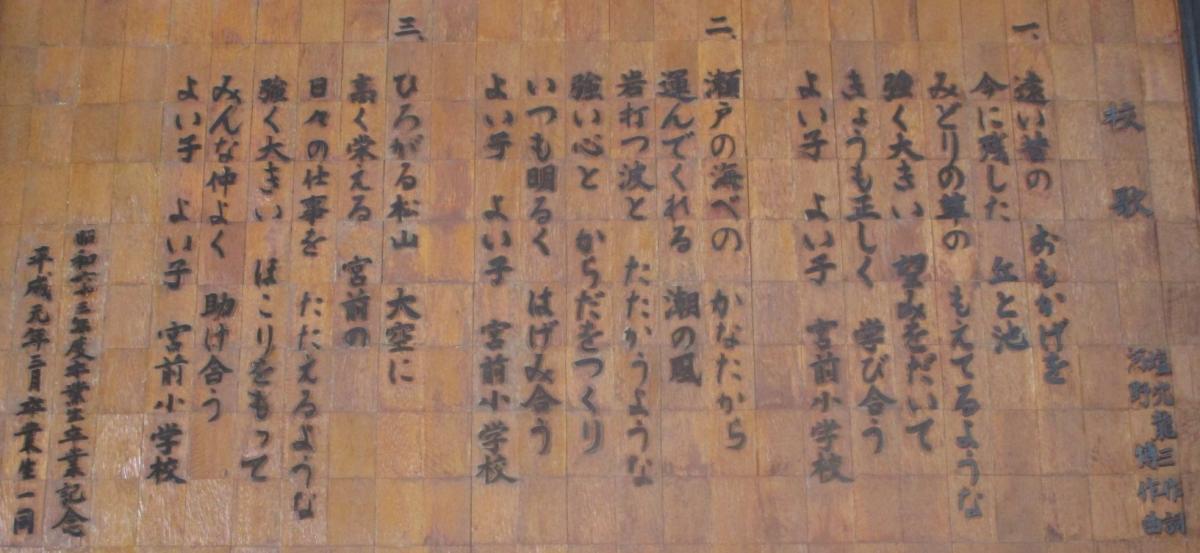 校歌
龍三作詞
野 博作曲
一、
遠い昔の おもかげを
今に残した 丘と池
みどりの草の もえてるような
強く大きい 望みをだいて
きょうも正しく 学び合う
よい子 よい子 宮前小学校
二、
瀬戸の海べの かなたから
運んでくれる 潮の風
岩打つ波と たたかうような
強い心と からだをつくり
いつも明るく はげみ合う
よい子 よい子 宮前小学校
三、
ひろがる松山 大空に
高く栄える 宮前の
日々の仕事を たたえるような
強く大きい ほこりをもって
みんな仲よく 助け合う
よい子 よい子 宮前小学校
昭和六十三年度卒業生卒業記念
平成元年三月 卒業生一同